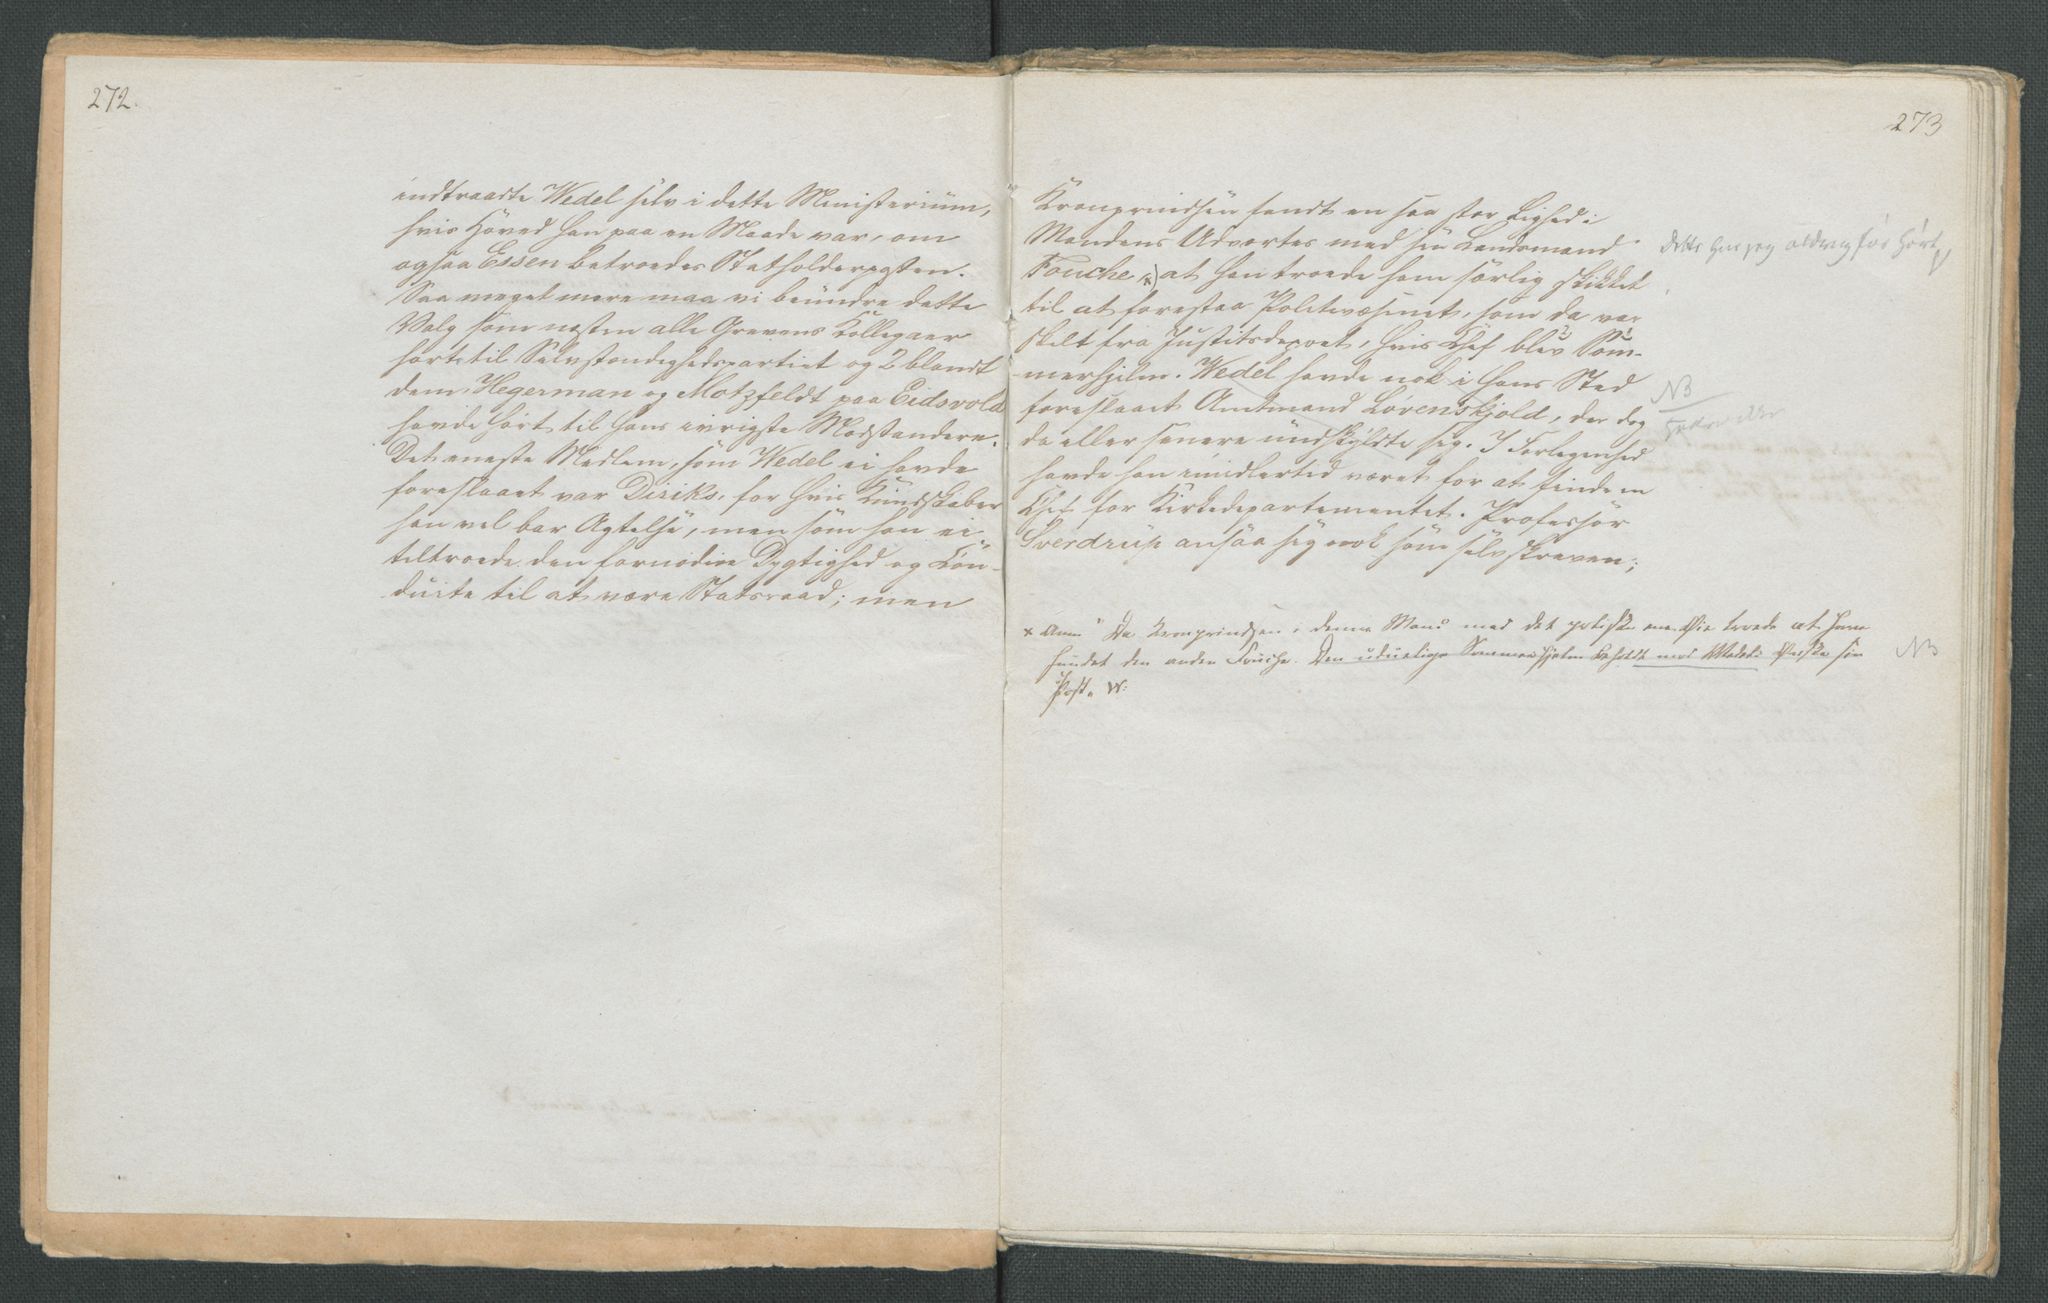 272.
indtraadte Wedel selv i dette Ministerium,
hvis Hoved han paa en Maade var, om
ogsaa Essen betroedes Statholderposten.
Saa meget mere maa vi beundre dette
Valg som næsten alle Grevens Kollegaer
hørte til Selvstændighedspartiet og 2 blandt
dem Hegerman og Motzfeldt paa Eidsvold
havde hørt til hans ivrigste Modstandere.
Det eneste Medlem, som Wedel ei havde
foreslaaet var Diriks, for hvis Kundskaber
han vel bar Agtelse, men som han ei
tiltroede den fornødne Dygtighed og Con-
duite til at være Statsraad; men
273
Kronprindsen fandt en saa stor Lighed i
Mandens Udvortes med sin Landsmand
Fouche x) at han troede ham særlig skikket
til at forestaa Politivæsenet, som da var
skilt fra Justitsdepoet, hvis Chef blev Som-
merhjelm. Wedel havde nok i hans Sted
foreslaaet Amtmand Løvenskjold, der dog
da eller senere undskyldte sig. I Forlegenhed
havde han imidlertid været for at finde en
Chef for Kirkedepartementet. Professor
Sverdrup ansaa sig nok som selvskreven;
dette har jeg aldrig før hørt
NB
x Anm " Da Kronprindsen i denne Mand med det politiske ene Øie troede at have
fundet den anden Fouche. Den uduelige Sommerhjelm beholdt mod Wedels Ønske sin
Post " W:
NB